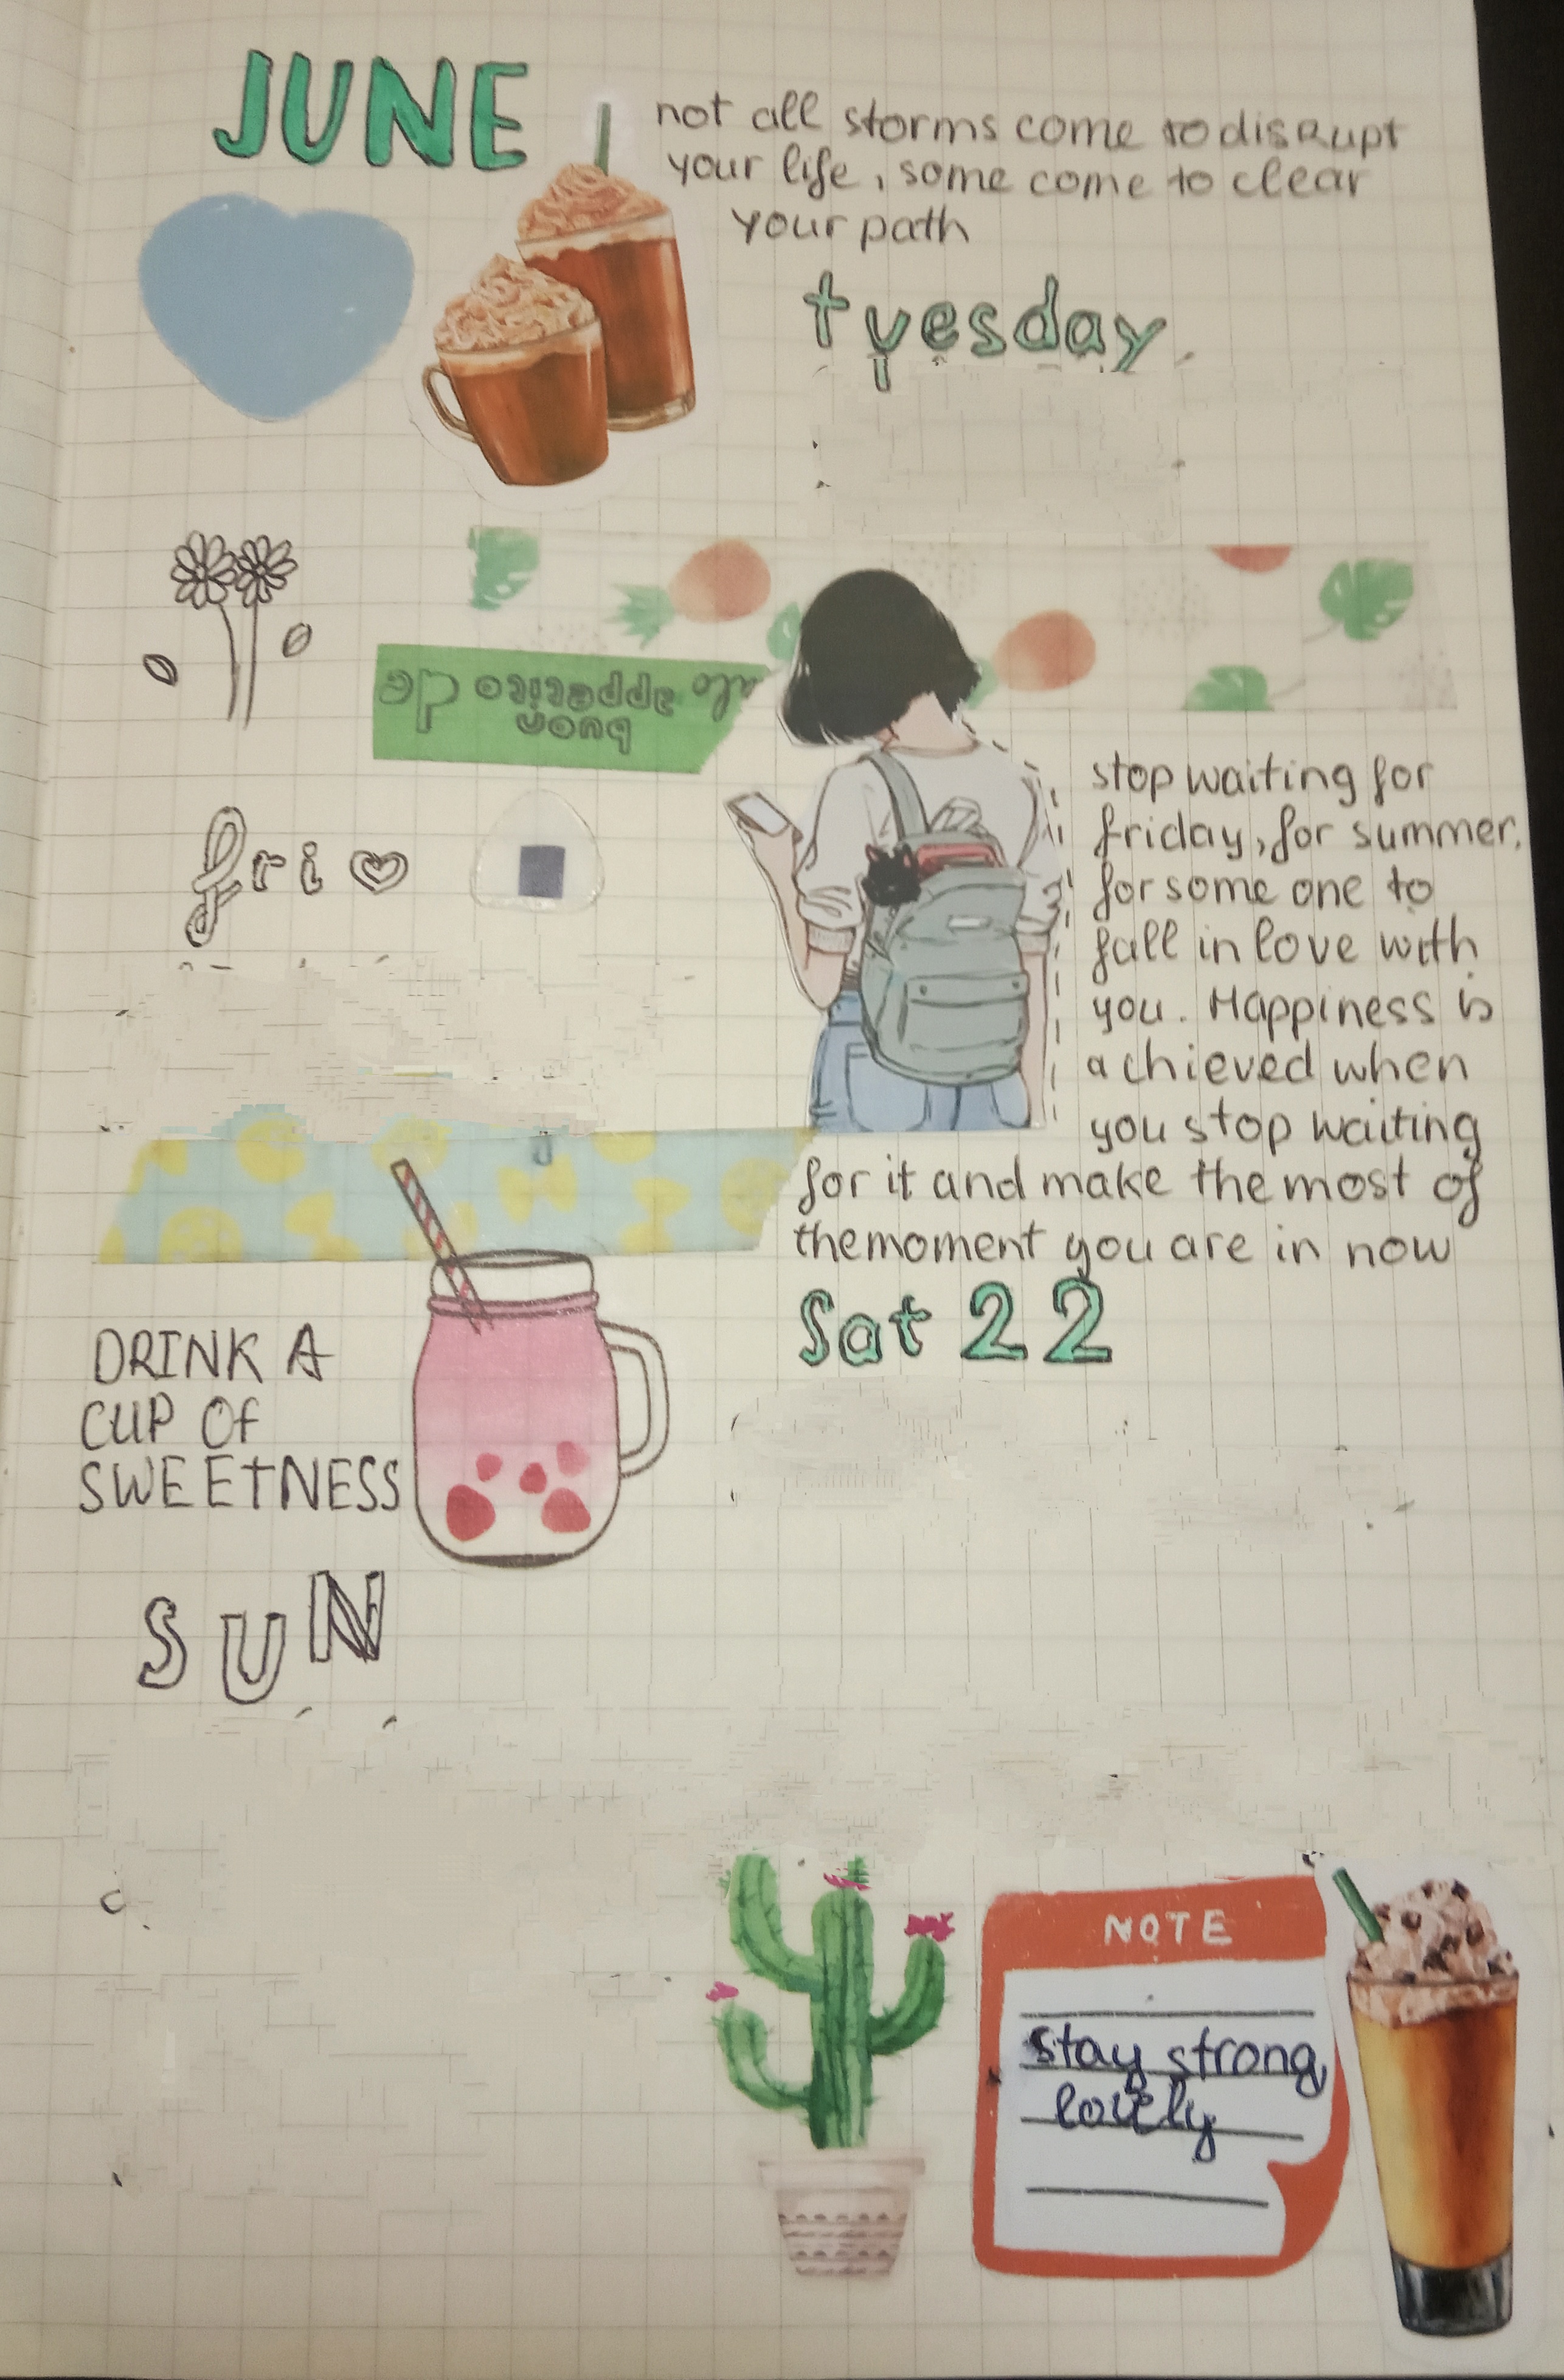 JUNE
not all storms come to disrupt
your life, some come to clear
your path
tuesday
buon
appetito de
fri
stop waiting for
friday, for summer,
for some one to
fall in love with
you. Happiness is
achieved when
you stop waiting
for it and make the most of
the moment you are in now
Sat 22
DRINK A
CUP OF
SWEETNESS
SUN
NOTE
stay strong
lovely